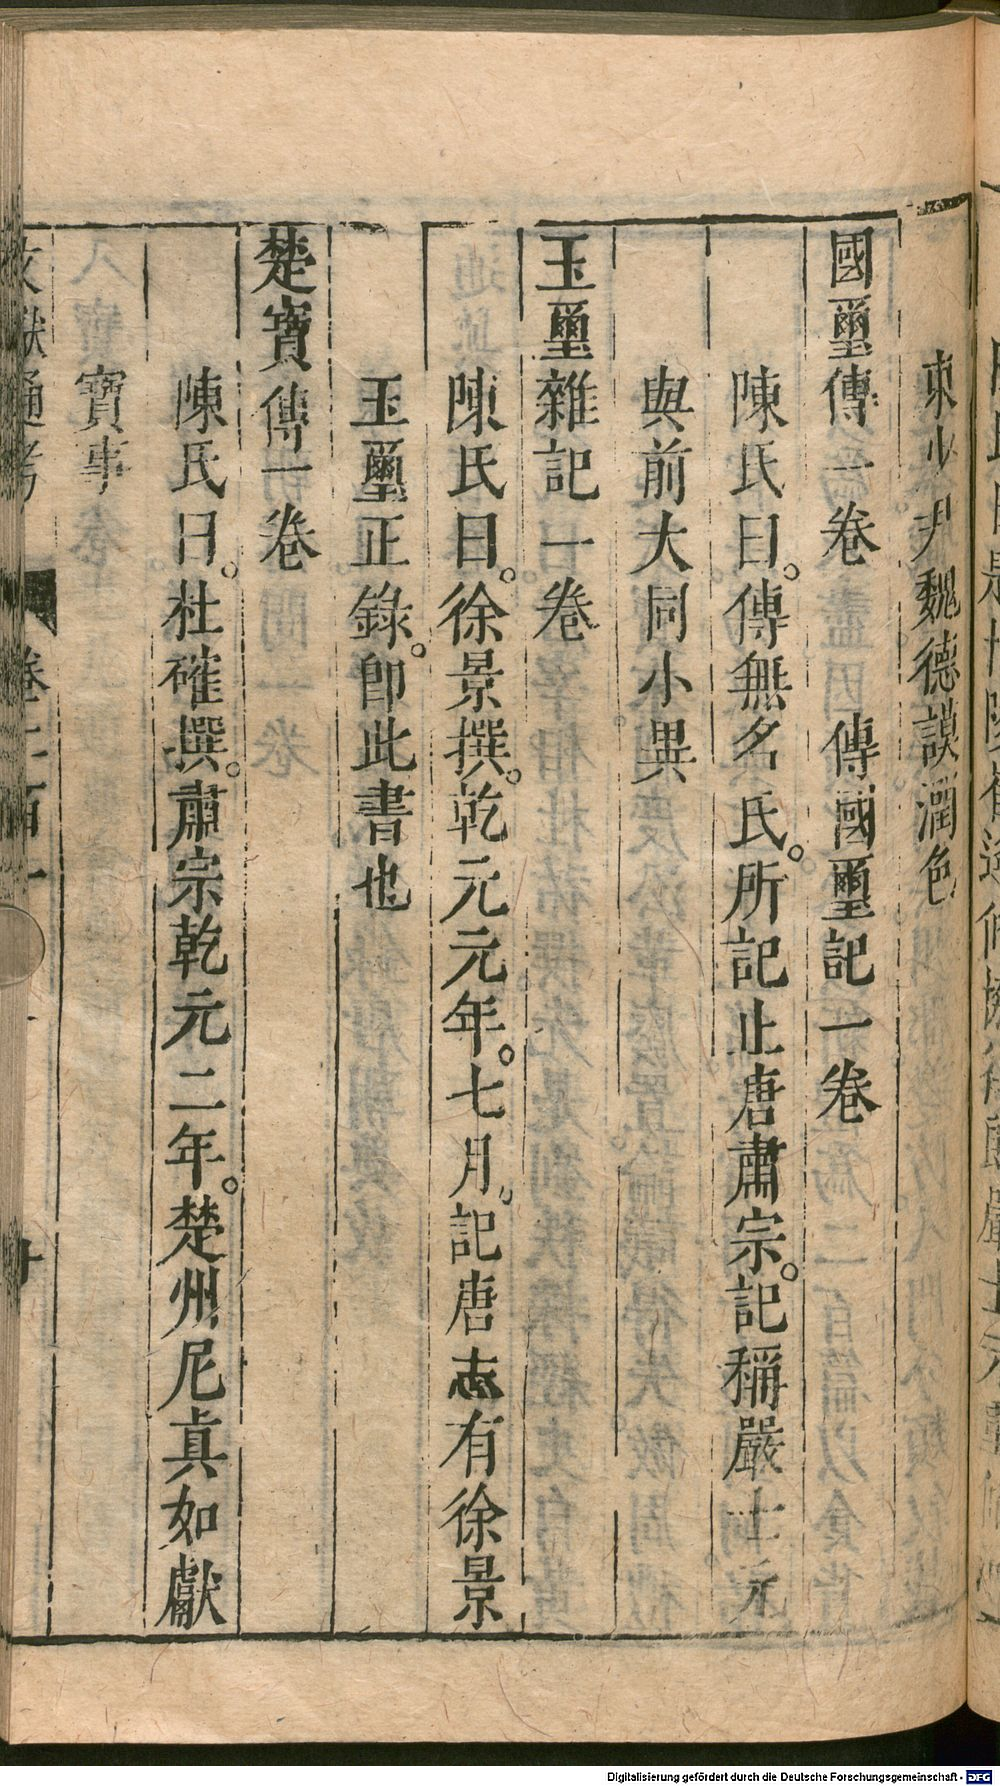 東少尹魏德謨潤色
國璽傳一卷　傳國璽記一卷
陳氏曰。傳無名氏。所記止唐肅宗。記稱嚴士元
與前大同小異
玉璽雜記一卷
陳氏曰。徐景撰。乾元元年。七月。記唐志有徐景
玉璽正錄。卽此書也
楚寶傳一卷
陳氏曰。杜確撰。肅宗乾元二年。楚州尼真如獻
寶事
文獻通考　卷二百一　廿
Digitalisierung gefördert durch die Deutsche Forschungsgemeinschaft - DFG